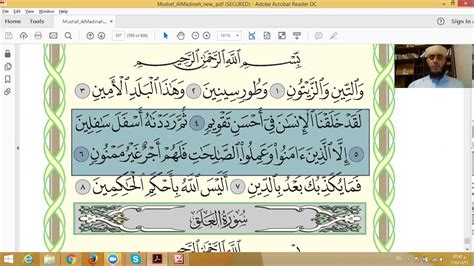 Mushaf_AlMadinah_new_.pdf (SECURED) - Adobe Acrobat Reader DC
بِسْمِ ٱللَّهِ ٱلرَّحْمَٰنِ ٱلرَّحِيمِ
وَٱلتِّينِ وَٱلزَّيْتُونِ ١ وَطُورِ سِينِينَ ٢ وَهَٰذَا ٱلْبَلَدِ ٱلْأَمِينِ ٣
لَقَدْ خَلَقْنَا ٱلْإِنسَٰنَ فِىٓ أَحْسَنِ تَقْوِيمٍ ٤ ثُمَّ رَدَدْنَٰهُ أَسْفَلَ سَٰفِلِينَ
٥ إِلَّا ٱلَّذِينَ ءَامَنُوا۟ وَعَمِلُوا۟ ٱلصَّٰلِحَٰتِ فَلَهُمْ أَجْرٌ غَيْرُ مَمْنُونٍ ٦
فَمَا يُكَذِّبُكَ بَعْدُ بِٱلدِّينِ ٧ أَلَيْسَ ٱللَّهُ بِأَحْكَمِ ٱلْحَٰكِمِينَ ٨
سُورَةُ ٱلْعَلَقِ